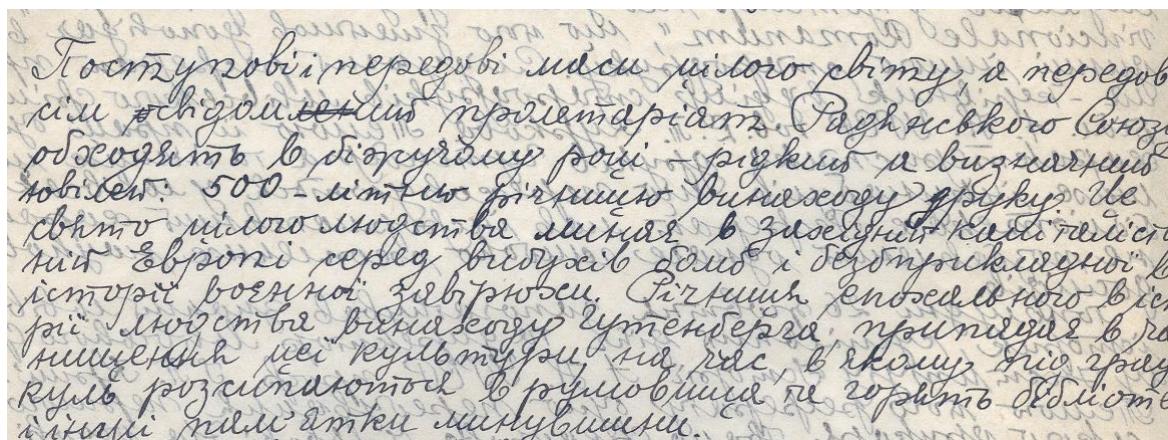 Поступові і передові маси цілого світу, а передов
сім свідомий пролетаріят Радянського Союзу
обходять в біжучому році – рідкий а визначний
ювілей: 500-літню річницю винаходу друку. Це
свято цілого людства минає в західній капіталісти
ній Европі серед вибухів бомб і безприкладної в
історії воєнної завірюхи. Річниця епохального в іс
рії людства винаходу Гутенберга, припадає в ча
нищення цеї культури, на час, в якому під град
куль розсипаються в румовища та горять бібліоте
і інші пам'ятки минувшини.